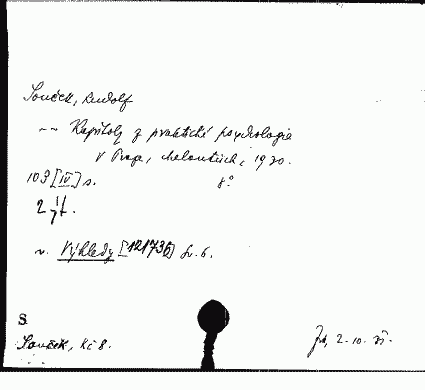 Souček, Rudolf
-- Kapitoly z praktické psychologie
V Praze, Melantrich, 1930.
103 [IV] s. 8°
v. Výhledy [121736] sv. 6.
S
Souček, Kč 8.
2.10.